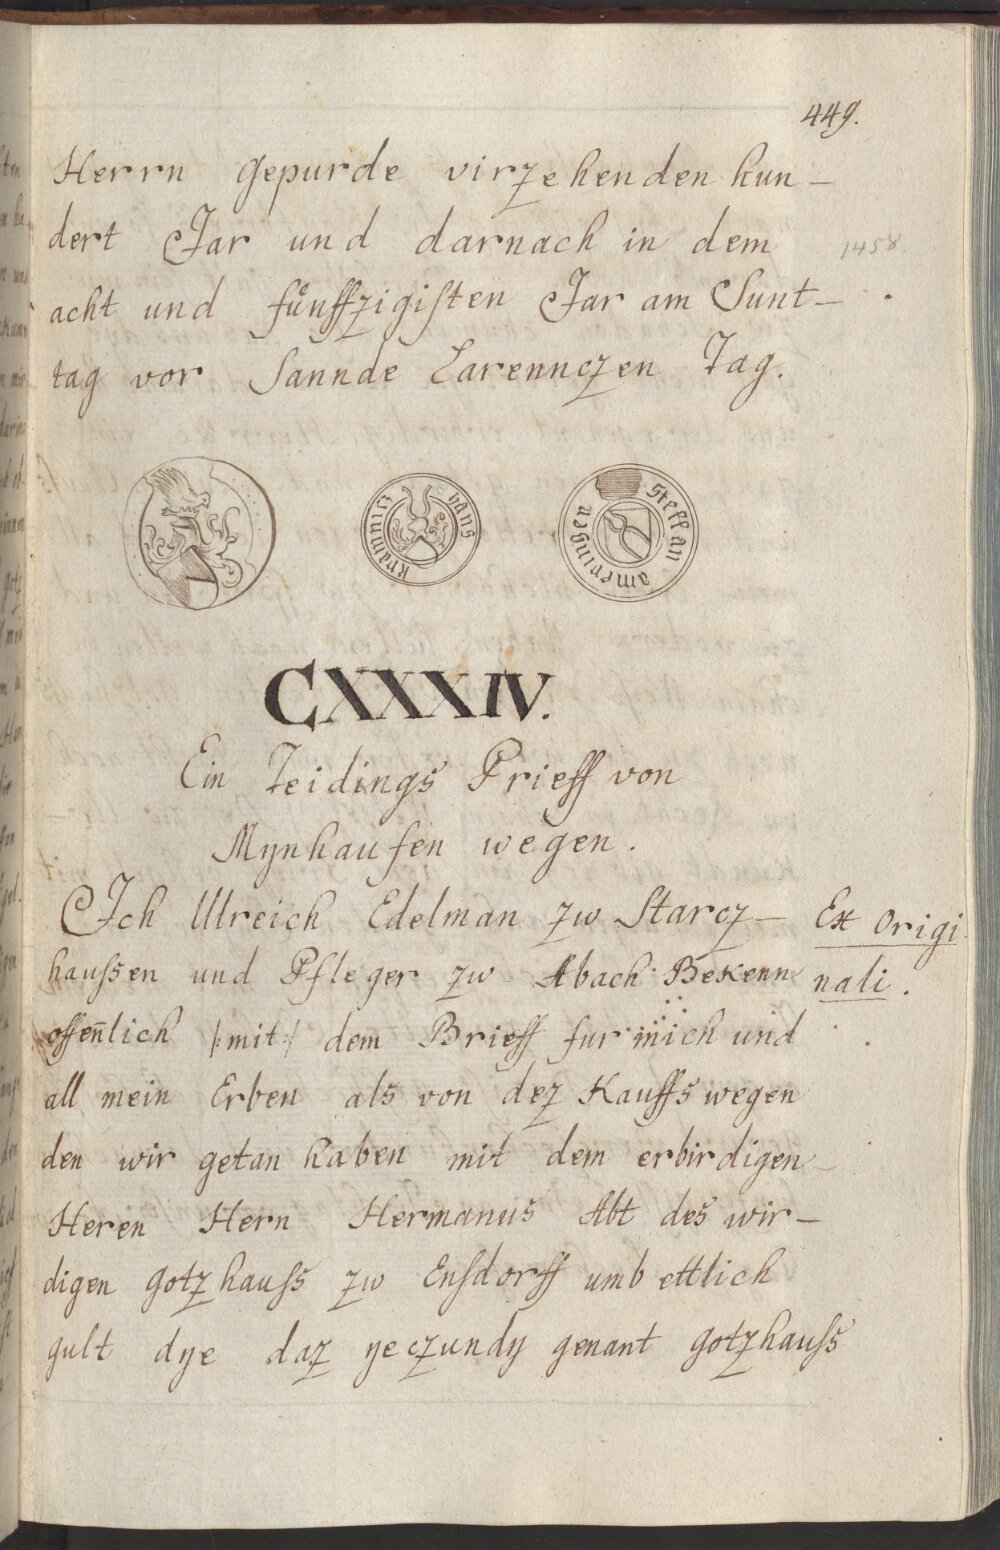 449.
Herrn gepurde virzehenden hun-
dert Jar und darnach in dem
1458.
acht und fůnffzigisten Jar am Sunt-
tag vor Sannde Larennczen Tag.
hans kramnicz
steffan ameringen
CXXXIV.
Ein Teidings Prieff von
Mynhausen wegen.
Ich Ulreich Edelman zw Starcz-
Ex Origi
haussen und Pfleger zw Abach Bekenn
nali.
offen̄lich /:mit:/ dem Brieff fur mich und
all mein Erben als von dez Kauffs wegen
den wir getan haben mit dem erbirdigen
Heren Hern Hermanus Abt des wir-
digen gotzhauss zw Ensdorff umb ettlich
gult dye daz yeczundy genant gotzhauss